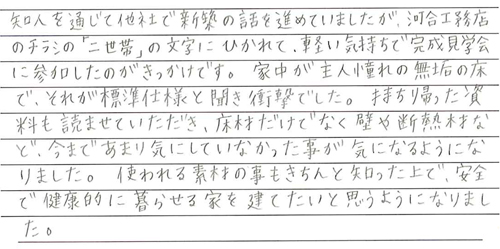 知人を通じて他社で新築の話を進めていましたが、河合工務店
のチラシの「二世帯」の文字にひかれて、軽い気持ちで完成見学会
に参加したのがきっかけです。 家中が主人憧れの無垢の床
で、それが標準仕様と聞き衝撃でした。 持ち帰った資
料も読ませていただき、床材だけでなく壁や断熱材な
ど、今まであまり気にしていなかった事が気になるようにな
りました。 使われる素材の事もきちんと知った上で、安全
で健康的に暮らせる家を建てたいと思うようになりまし
た。